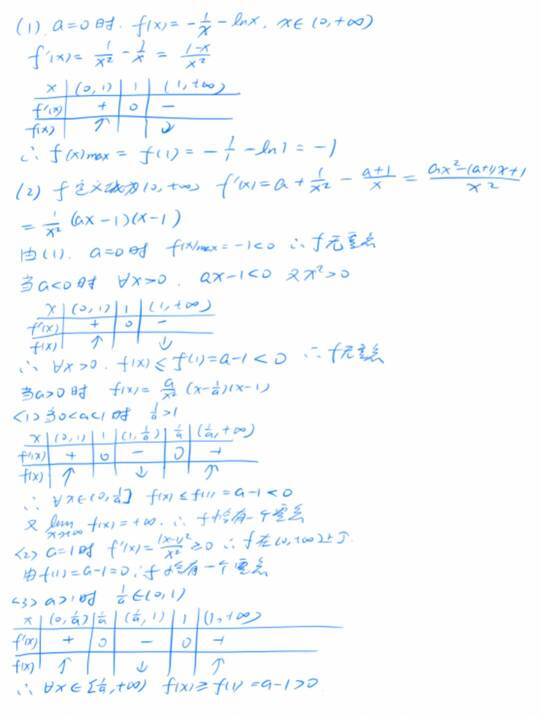 (1) a=0时. f(x)=-1/x-lnx. x∈(0,+∞)
f'(x)=1/x²-1/x=(1-x)/x²
x | (0,1) | 1 | (1,+∞)
f'(x) | + | 0 | -
f(x) | ↑ | | ↓
∴ f(x)max=f(1)=-1/1-ln1=-1
(2) f定义域为(0,+∞) f'(x)=a+1/x²-(a+1)/x=(ax²-(a+1)x+1)/x²
=1/x²(ax-1)(x-1)
由(1). a=0时 f(x)max=-1<0 ∴f无零点
当a<0时 ∀x>0. ax-1<0 又x²>0
x | (0,1) | 1 | (1,+∞)
f'(x) | + | 0 | -
f(x) | ↑ | | ↓
∴ ∀x>0. f(x)≤f(1)=a-1<0 ∴f无零点
当a>0时 f(x)=a/x²(x-1/a)(x-1)
<1>当0<a<1时 1/a>1
x | (0,1) | 1 | (1,1/a) | 1/a | (1/a,+∞)
f'(x) | + | 0 | - | 0 | +
f(x) | ↑ | | ↓ | | ↑
∴ ∀x∈(0,1/a] f(x)≤f(1)=a-1<0
又 lim x→+∞ f(x)=+∞. ∴ f恰有一个零点
<2> a=1时 f'(x)=(x-1)²/x²≥0 ∴f在(0,+∞)上↑.
由f(1)=a-1=0,∴f恰有一个零点
<3> a>1时 1/a∈(0,1)
x | (0,1/a) | 1/a | (1/a,1) | 1 | (1,+∞)
f'(x) | + | 0 | - | 0 | +
f(x) | ↑ | | ↓ | | ↑
∴ ∀x∈[1/a,+∞) f(x)≥f(1)=a-1>0